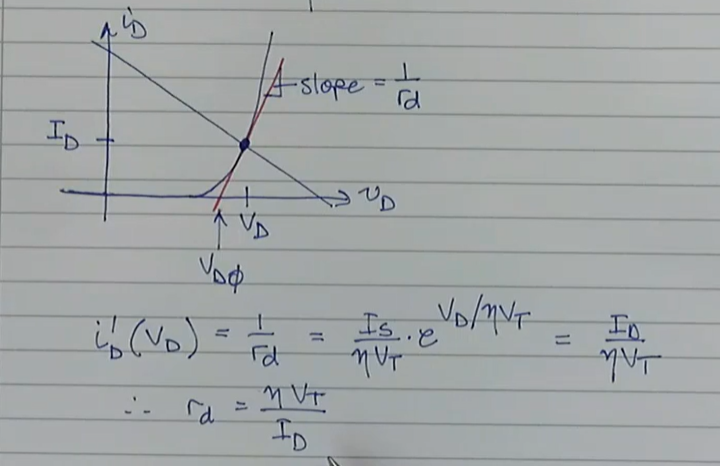 i_D
slope = 1/r_d
I_D
v_D
V_D
V_Dϕ
i'_D(V_D) = 1/r_d = I_S/ηV_T · e^{V_D/ηV_T} = I_D/ηV_T
∴ r_d = ηV_T/I_D